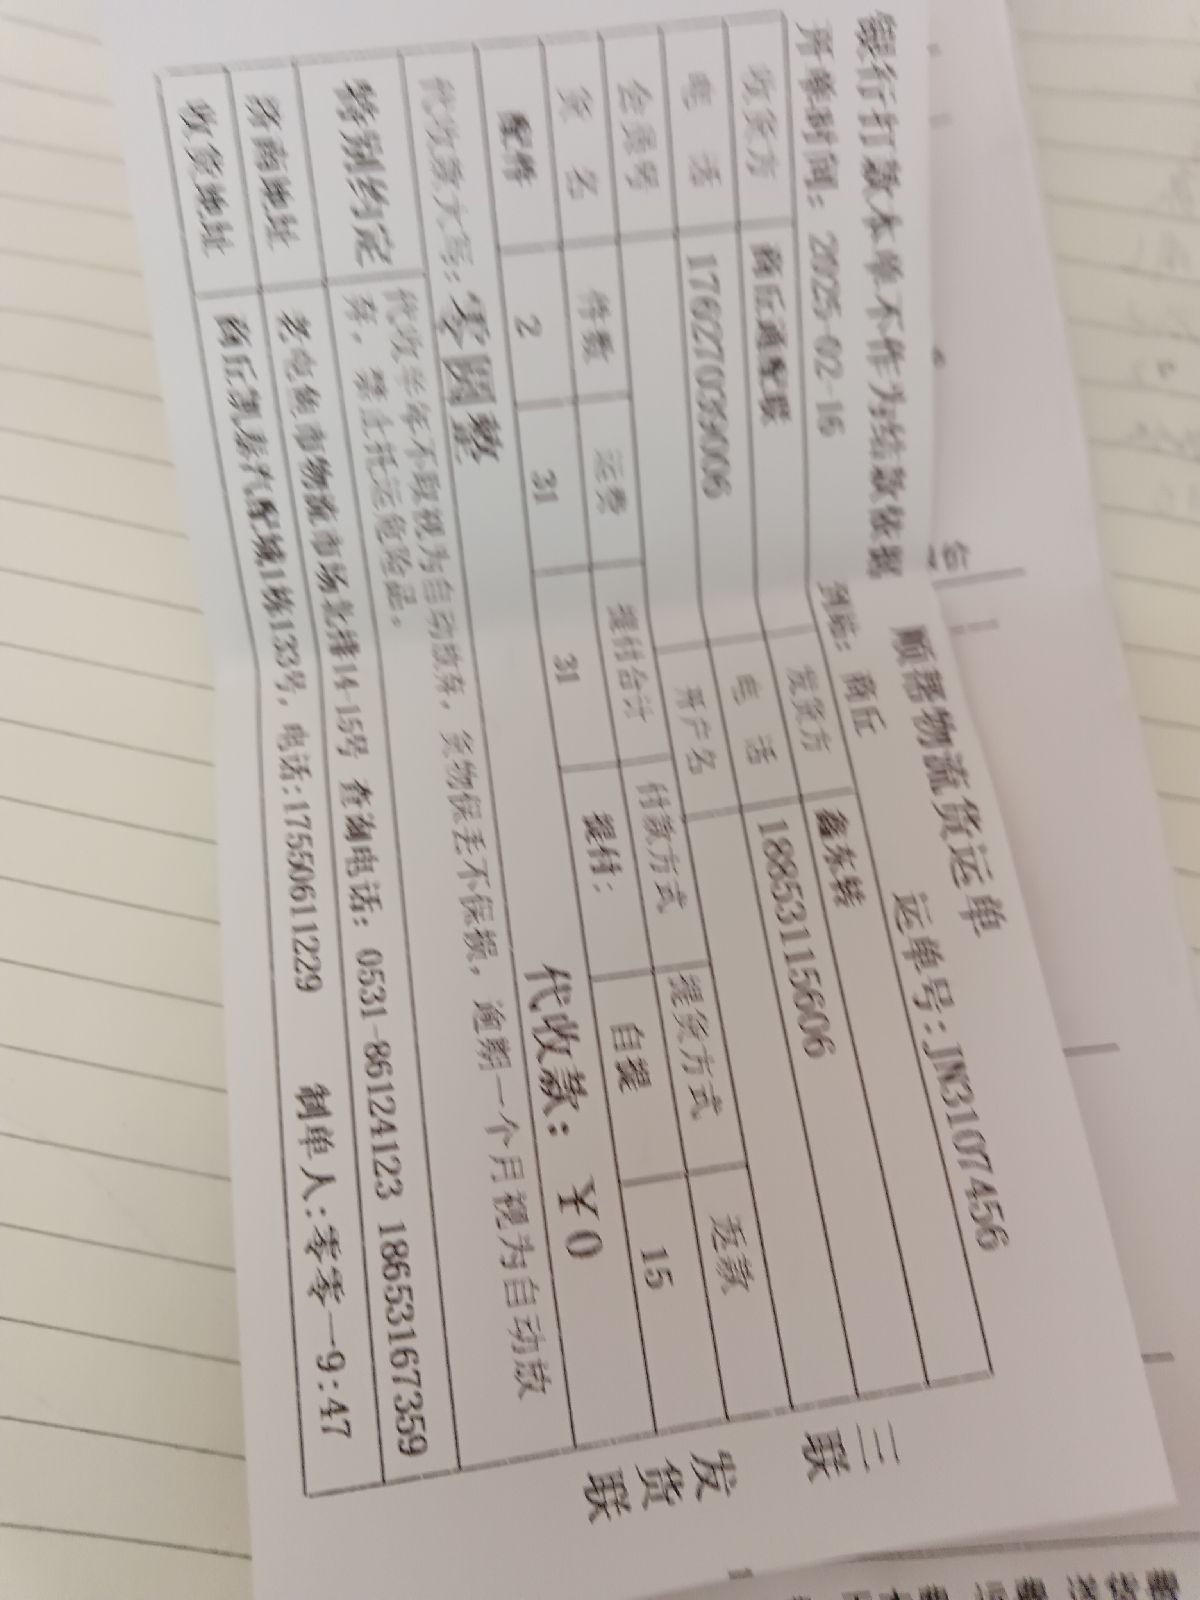 顺 物流货运单
银行打款本单不作为结款依据
运单号:JN3107456
开单时间: 2025-02-16 到站: 商丘
收货方 商丘通配联 发货方 鑫东转
电 话 17627039006 电 话 18853115606
会员号 开户名
货 名 件数 运费 提付合计 付款方式 提货方式 返款
配件 2 31 31 提付: 自提 15
代收款大写: 零圆整 代收款: ¥0
特别约定 代收半年不取视为自动放弃, 货物保丢不保损, 逾期一个月视为自动放
弃, 禁止托运危险品。
济南地址 老屯 市物流市场北排14-15号 查询电话: 0531-86124123 18653167359
收货地址 商丘凯泰汽配城1栋133号, 电话:17550611229 制单人:零零一9:47
三联
发货联